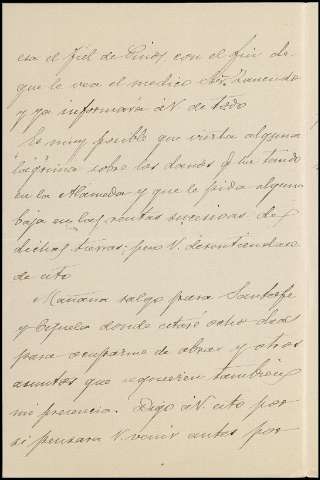 esa el Fiel de Pinos con el fin de
que le vea el medico Sr.
y ya informará á V. de todo
Es muy posible que vierta alguna
lágrima sobre los daños q. han tenido
en la Alameda y que le pida alguna
baja en las rentas sucesivas de
dichas tierras; pero V. desentiendase
de esto
Mañana salgo para Santafe
y Ejuela donde estaré ocho dias
para ocuparme de obras y otros
asuntos que requieren tambien
mi presencia. Digo á V. esto por
si pensara V. venir antes por